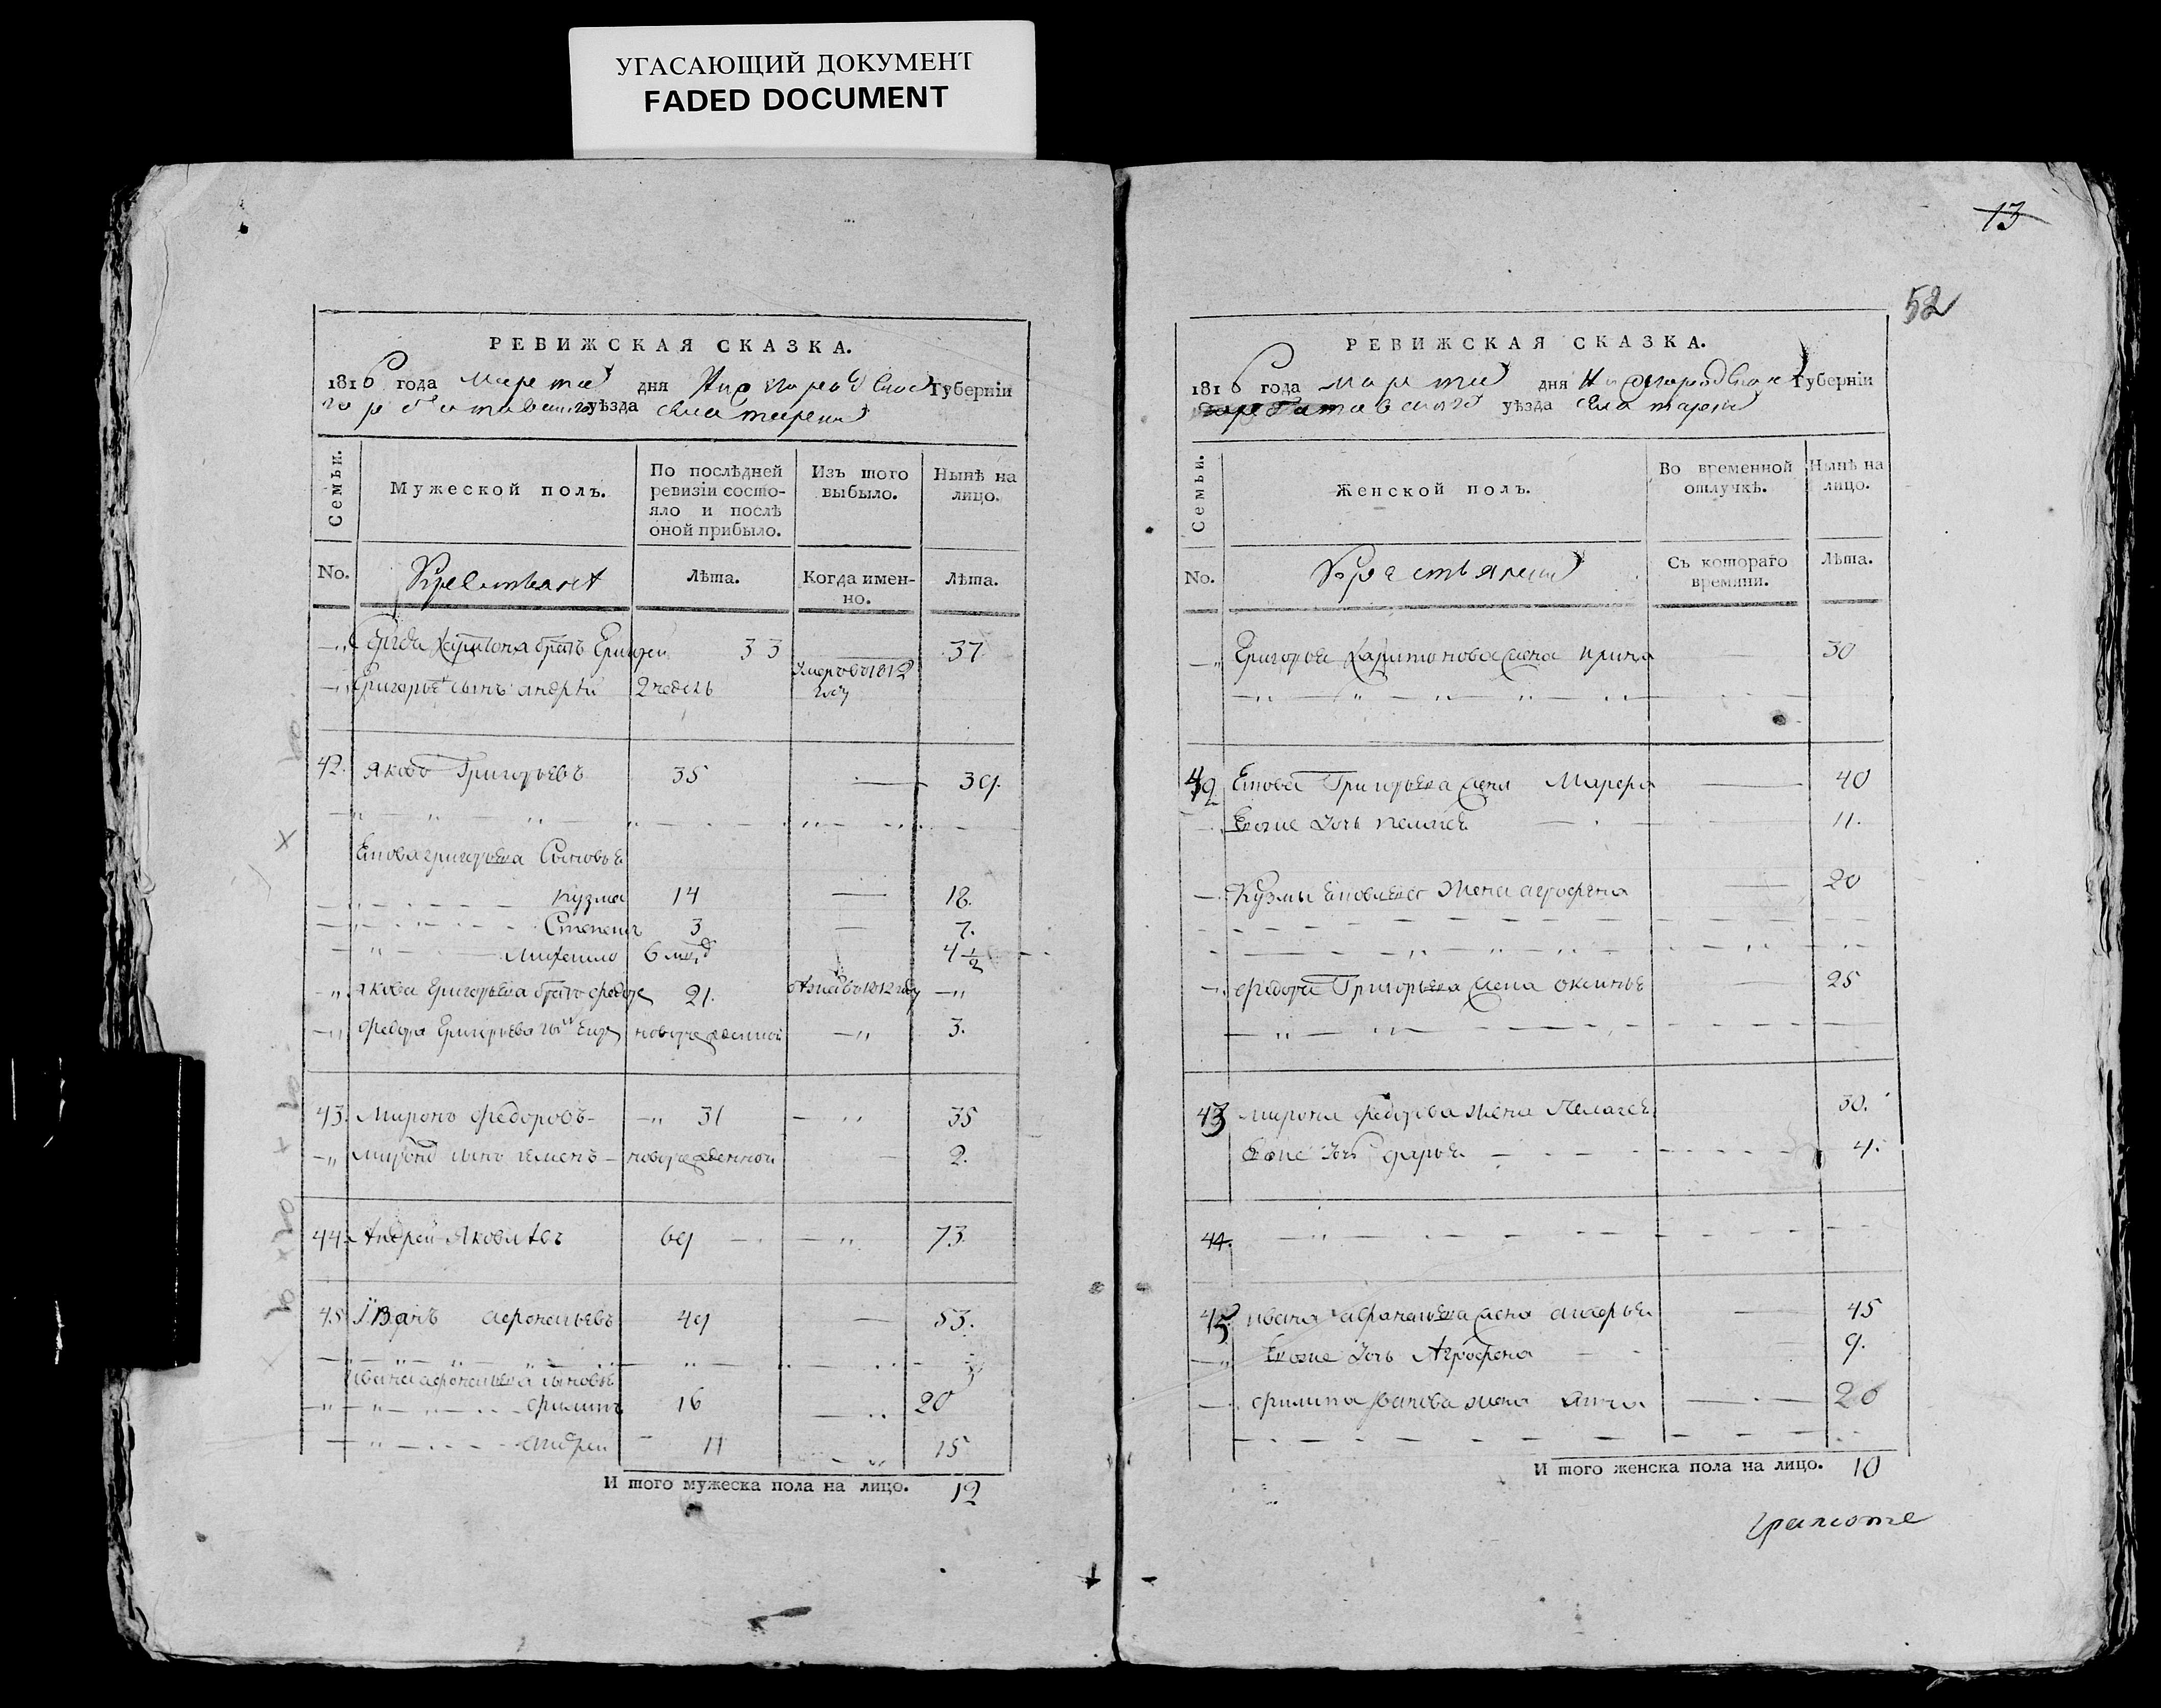 УГАСАЮЩИЙ ДОКУМЕНТ
FADED DOCUMENT
РЕВИЖСКАЯ СКАЗКА.
1816 года марта дня Нижегородской Губерніи
Горбатовского уѣзда села
Семьи.
Мужеской полъ.
По послѣдней ревизіи состояло и послѣ оной прибыло.
Изъ того выбыло.
Нынѣ на лицо.
No.
Крестьяне
Лѣта.
Когда именно.
Лѣта.
Харитона братъ Григорей 33 — 37
Григорья сынъ андрѣй 2 недель Умеръ во 1812 году
42. Яковъ Григорьевъ 35 — 39.
Якова григорьева Сыновья
Кузма 14 — 18.
Степанъ 3 — 7.
Михайло 6 4 1/2
Якова Григорьева братъ Федоръ 21. во 1812 году —"
Федора Григорьева новорожденной —" 3.
43. Миронъ Федоровъ — 31 — 35
Мирона сынъ семенъ — новорожденной — 2.
44. Андрей Яковлевъ 69 — 73.
45 Иванъ афонасьевъ 49 — 53.
Ивана афонасьева сыновья
Филипъ 16 — 20
Андрей 11 15
И того мужеска пола на лицо. 12
13
52
РЕВИЖСКАЯ СКАЗКА.
1816 года марта дня Нижегородской Губерніи
Горбатовского уѣзда села
Семьи.
Женской полъ.
Во временной отлучкѣ.
Нынѣ на лицо.
No.
Крестьяне
Съ котораго времяни.
Лѣта.
Григорья Харитонова жена ирина — 30
42 Якова Григорьева жена Марфа — 40
Евоже дочь пелагея — 11.
Кузмы Яковлева жена аграфена — 20
Федора Григорьева жена оксинья — 25
43 мирона федорова жена Пелагея 30.
Евоже дочь дарья 4.
44.
45 ивана афанасьева жена — 45
Евоже дочь Аграфена — 9.
филипа иванова жена анна — 20
И того женска пола на лицо. 10
грамоте